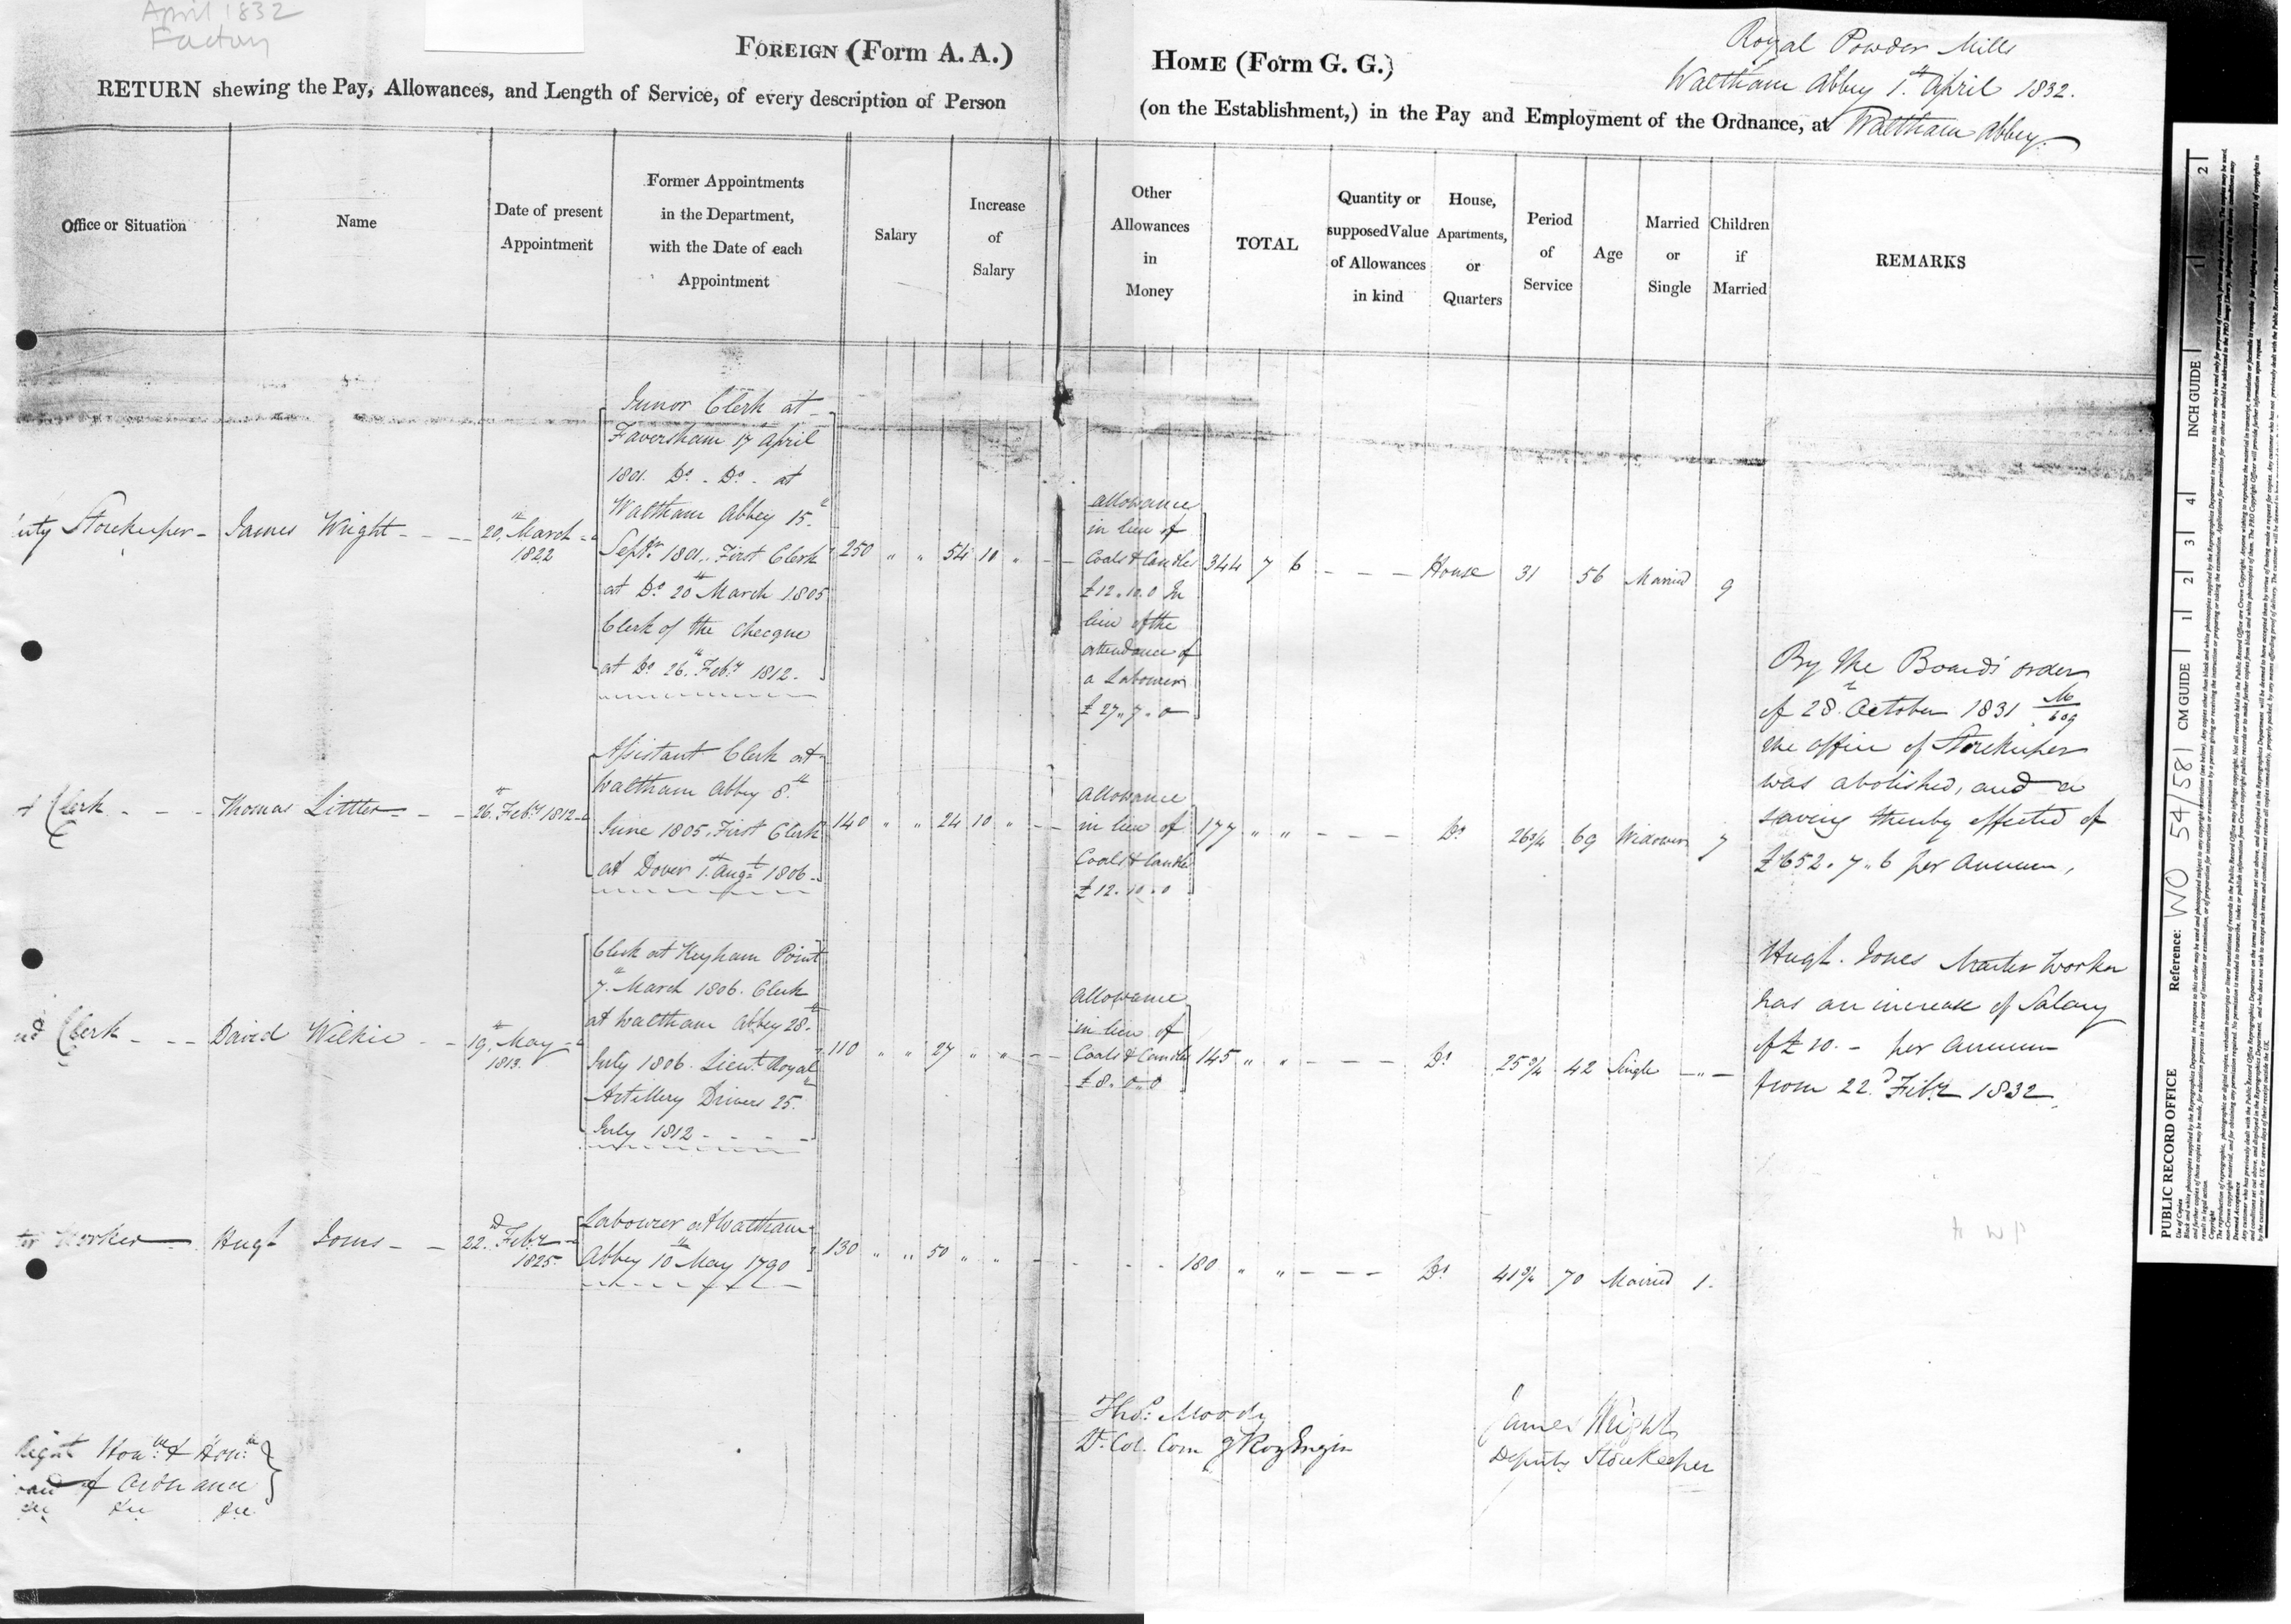 April 1832
Factory
FOREIGN (Form A. A.)
RETURN shewing the Pay, Allowances, and Length of Service, of every description of Person
HOME (Form G. G.)
Royal Powder Mills
Waltham Abbey 1st April 1832.
(on the Establishment,) in the Pay and Employment of the Ordnance, at Waltham Abbey.
Office or Situation
Name
Date of present
Appointment
Former Appointments
in the Department,
with the Date of each
Appointment
Salary
Increase
of
Salary
Other
Allowances
in
Money
TOTAL
Quantity or
supposed Value
of Allowances
in kind
House,
Apartments,
or
Quarters
Period
of
Service
Age
Married
or
Single
Children
if
Married
REMARKS
uty Storekeeper - James Wright - - -
20th March
1822
Junor Clerk at
Faversham 17 April
1801. Do. Do. at
Waltham Abbey 15th
Septr 1801. First Clerk
at Do 20th March 1805
Clerk of the Checque
at Do 26th Feby 1812.
250 " " 54 10 " - -
allowance
in lieu of
Coals & Candles
£12.10.0 In
lieu of the
attendance of
a Labourer
£27.7.0
344 7 6 - - - House 31 56 Married 9
t Clerk - - - Thomas Littler - -
26th Feby 1812
Assistant Clerk at
Waltham Abbey 8th
June 1805. First Clerk
at Dover 1st Augt 1806.
140 " " 24 10 " - -
allowance
in lieu of
Coals & Candles
£12.10.0
177 " " - - - Do 26 3/4 69 Widower 7
nd Clerk - - - David Wilkie - -
19th May
1813.
Clerk at Keyham Point
7th March 1806. Clerk
at Waltham Abbey 28th
July 1806. Lieut Royal
Artillery Drivers 25th
July 1812 - - - -
110 " " 27 " " - -
allowance
in lieu of
Coals & Candles
£8.0.0
145 " " - - - - Do 25 3/4 42 Single - " -
ter Worker - Hugh Jones - -
22d Feby
1825
Labourer at Waltham
Abbey 10th May 1790
130 " " 50 " " - - - - 180 " " - - - Do 41 3/4 70 Married 1.
By the Board's order
of 28th October 1831 M/609
the office of Storekeeper
was abolished, and a
saving thereby effected of
£652.7.6 per Annum,
Hugh Jones Master Worker
has an increase of Salary
of £10. - per Annum
from 22d Feby 1832.
Right Honble & Honble
oard of Ordnance
&c &c &c
Thos. Moody
Lt. Col. Com g Roy Engin
James Wright
Deputy Storekeeper
INCH GUIDE
1
2
CM GUIDE
1
2
3
4
PUBLIC RECORD OFFICE
Reference: WO 54/581